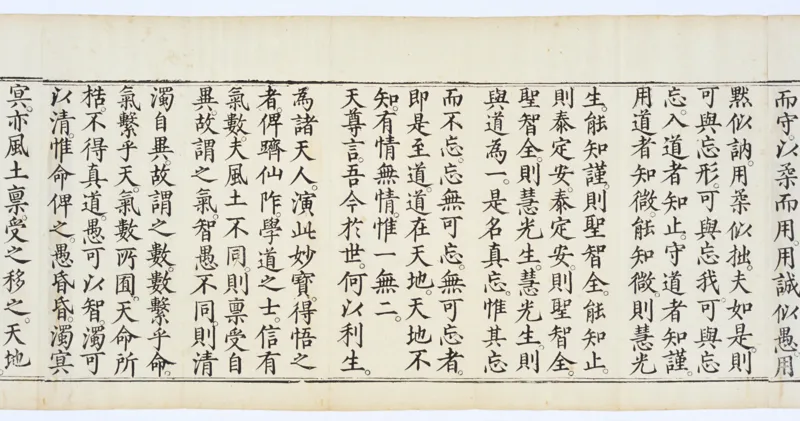 而守。以柔而用。用誠似愚用
黙似訥。用柔似拙。夫如是則
可與忘形。可與忘我。可與忘
忘。入道者知止。守道者知謹。
用道者知微。能知微。則慧光
生。能知謹。則聖智全。能知止。
則泰定安。泰定安。則聖智全。
聖智全。則慧光生。慧光生。則
與道為一。是名真忘。惟其忘
而不忘。忘無可忘。無可忘者。
即是至道。道在天地。天地不
知。有情無情。惟一無二。
天尊言。吾今於世。何以利生。
為諸天人。演此妙寶。得悟之
者。俾躋仙阼。學道之士。信有
氣數。夫風土不同。則稟受自
異。故謂之氣。智愚不同。則清
濁自異。故謂之數。數繫乎命。
氣繫乎天。氣數所囿。天命所
梏。不得真道。愚可以智。濁可
以清。惟命俾之。愚昏昏。濁冥
冥。亦風土稟受之移之。天地。